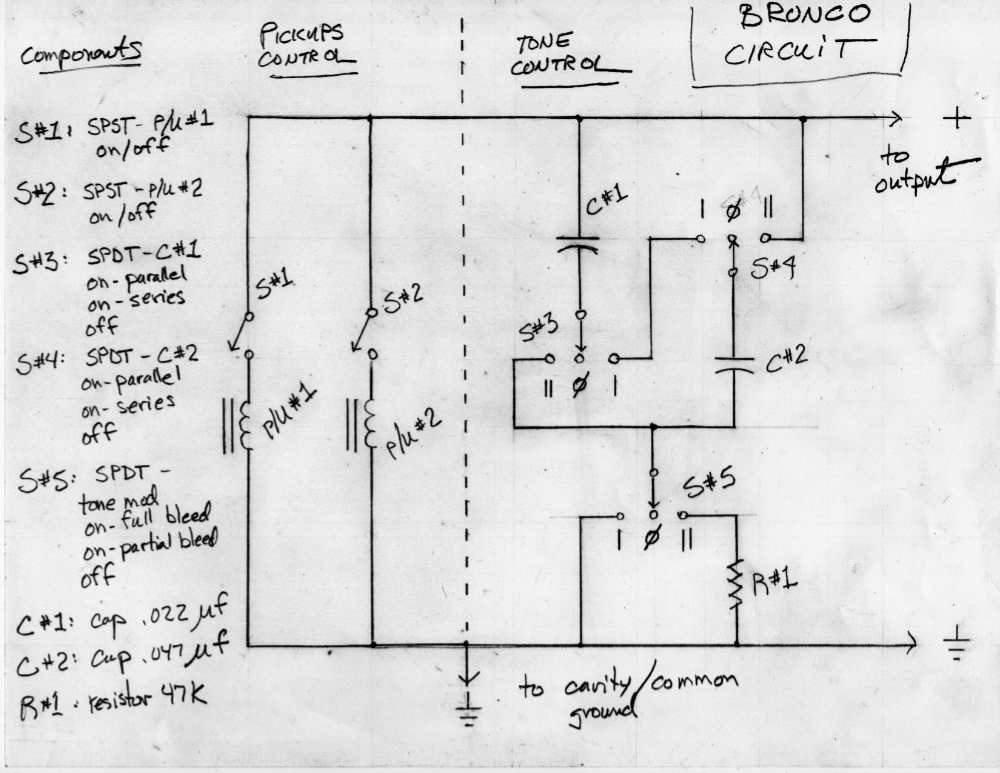 BRONCO
CIRCUIT
Components
S#1: SPST - P/U #1
on/off
S#2: SPST - P/U #2
on/off
S#3: SPDT - C#1
on-parallel
on-series
off
S#4: SPDT - C#2
on-parallel
on-series
off
S#5: SPDT -
tone mod
on-full bleed
on-partial bleed
off
C#1: cap .022 µf
C#2: cap .047 µf
R#1: resistor 47K
PICKUPS
CONTROL
S#1
S#2
P/U #1
P/U #2
TONE
CONTROL
C#1
S#4
I Ø II
S#4
S#3
II Ø I
C#2
S#5
I Ø II
R#1
+
to
output
to cavity/common
ground